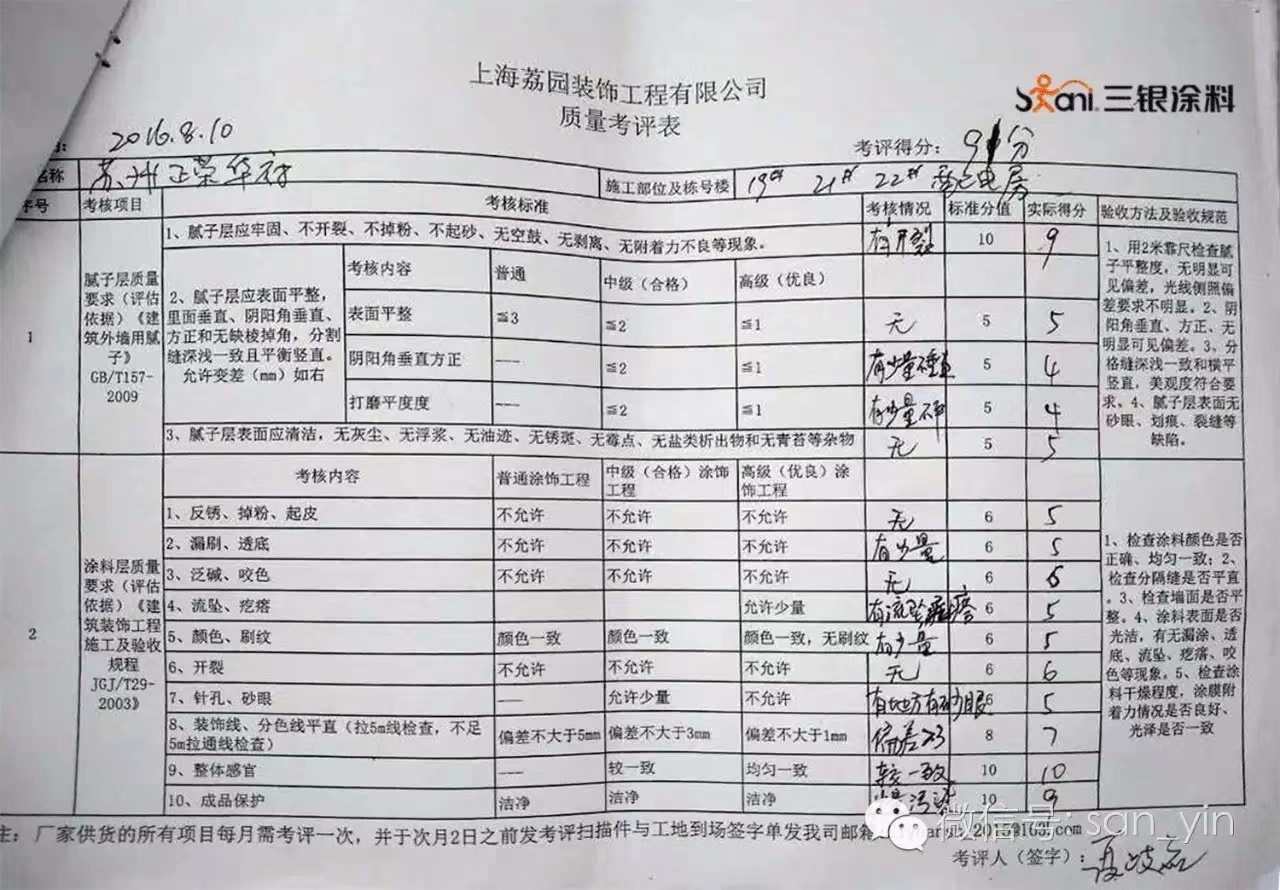 上海荔园装饰工程有限公司
质量考评表
Sani 三银涂料
2016.8.10
考评得分： 91分
名称 苏州正荣华府 施工部位及栋号楼 19# 21# 22# 配电房
序号 考核项目 考核标准 考核情况 标准分值 实际得分 验收方法及验收规范
1 腻子层质量要求（评估依据）《建筑外墙用腻子》GB/T157-2009
1、腻子层应牢固、不开裂、不掉粉、不起砂、无空鼓、无剥离、无附着力不良等现象。 有开裂 10 9
2、腻子层应表面平整，里面垂直、阴阳角垂直、方正和无缺棱掉角，分割缝深浅一致且平衡竖直。允许变差（mm）如右
考核内容 普通 中级（合格） 高级（优良）
表面平整 ≦3 ≦2 ≦1 无 5 5
阴阳角垂直方正 --- ≦2 ≦1 有少量不垂直 5 4
打磨平度度 --- ≦2 ≦1 有少量不平 5 4
3、腻子层表面应清洁，无灰尘、无浮浆、无油迹、无锈斑、无霉点、无盐类析出物和无青苔等杂物 无 5 5
1、用2米靠尺检查腻子平整度，无明显可见偏差，光线侧照偏差要求不明显。2、阴阳角垂直、方正、无明显可见偏差。3、分格缝深浅一致和横平竖直，美观度符合要求。4、腻子层表面无砂眼、划痕、裂缝等缺陷。
2 涂料层质量要求（评估依据）《建筑装饰工程施工及验收规程JGJ/T29-2003》
考核内容 普通涂饰工程 中级（合格）涂饰工程 高级（优良）涂饰工程
1、反锈、掉粉、起皮 不允许 不允许 不允许 无 6 5
2、漏刷、透底 不允许 不允许 不允许 有少量 6 5
3、泛碱、咬色 不允许 不允许 不允许 无 6 6
4、流坠、疙瘩 允许少量 有流坠疙瘩 6 5
5、颜色、刷纹 颜色一致 颜色一致 颜色一致，无刷纹 有少量 6 5
6、开裂 不允许 不允许 不允许 无 6 6
7、针孔、砂眼 --- 允许少量 不允许 有地方有砂眼 6 5
8、装饰线、分色线平直（拉5m线检查，不足5m拉通线检查） 偏差不大于5mm 偏差不大于3mm 偏差不大于1mm 偏差≥3 8 7
9、整体感官 --- 较一致 均匀一致 较一致 10 10
10、成品保护 洁净 洁净 洁净 污染 10 9
1、检查涂料颜色是否正确、均匀一致；2、检查分隔缝是否平直。3、检查墙面是否平整。4、涂料表面是否光洁，有无漏涂、透底、流坠、疙瘩、咬色等现象。5、检查涂料干燥程度，涂膜附着力情况是否良好、光泽是否一致
注：厂家供货的所有项目每月需考评一次，并于次月2日之前发考评扫描件与工地到场签字单发我司邮箱
微信号：san_yin
考评人（签字）：